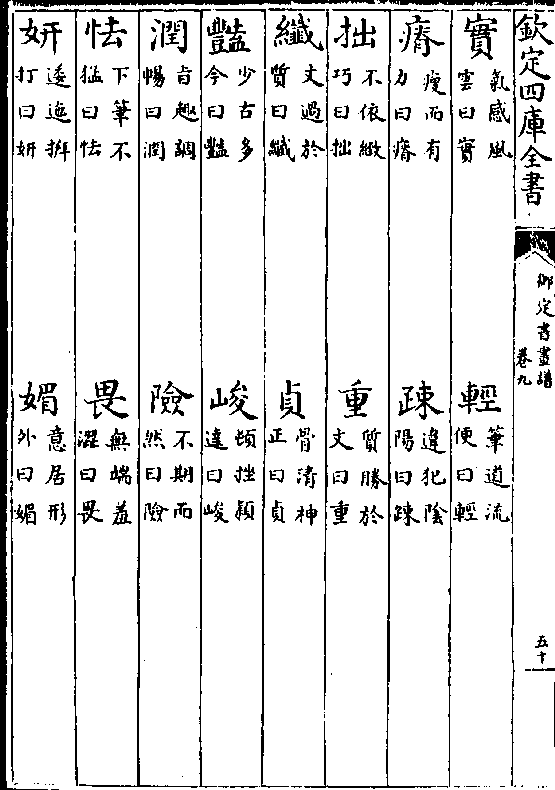 欽定四庫全書
御定書畫譜
卷九
五十
實 氣感風雲曰實
輕 筆道流便曰輕
瘠 瘦而有力曰瘠
踈 違犯陰陽曰踈
拙 不依緻巧曰拙
重 質勝於文曰重
纖 文過於質曰纖
貞 骨清神正曰貞
豔 少古多今曰豔
峻 頓挫頴達曰峻
潤 旨趣調暢曰潤
險 不期而然曰險
怯 下筆不猛曰怯
畏 無端羞澀曰畏
妍 逶迤打曰妍
媚 意居形外曰媚